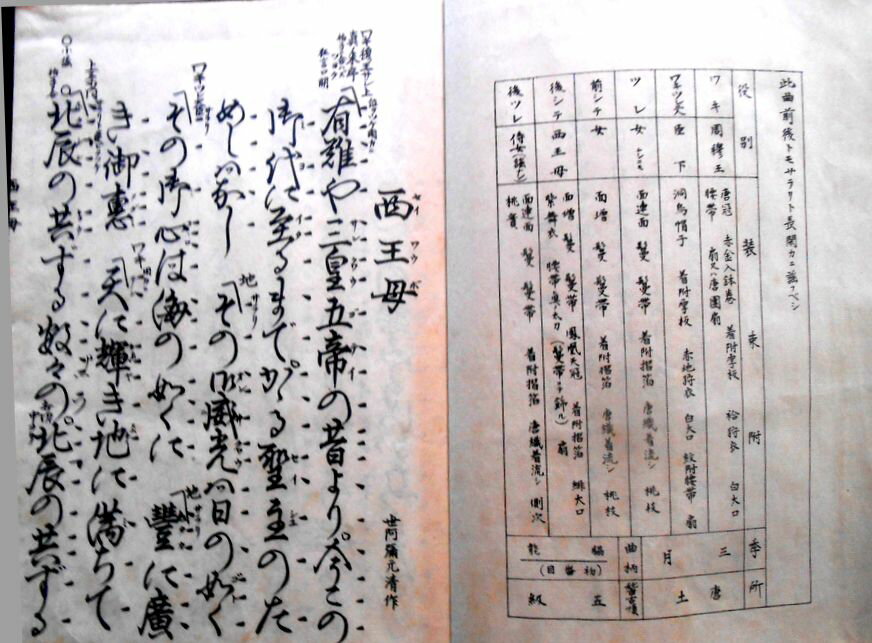 此曲前後トモサラリト長閑カニ謡フベシ
役別 装束附 季 所
ワキ 周穆王 唐冠 赤金入鉢巻 着附厚板 袷狩衣 白大口 腰帯 扇又ハ唐團扇
ワキツレ 臣下 洞烏帽子 着附厚板 赤地狩衣 白大口 紋附腰帯 扇
ツレ 女 面連面 鬘 鬘帯 着附摺箔 唐織着流シ 桃枝
前シテ 女 面増 鬘 鬘帯 着附摺箔 唐織着流シ 桃枝
後シテ 西王母 面増 鬘 鬘帯 鳳凰天冠 着附摺箔 緋大口 紫舞衣 腰帯 真太刀 (鬘帯ヲ飾ル) 扇
後ツレ 侍女 面連面 鬘 鬘帯 着附摺箔 唐織着流シ 側次 桃實
三月
唐土
曲柄
脇能
五級
西王母
世阿彌元清作
有難や三皇五帝の昔より。今この
御代に至るまでかゝる聖主のた
めしはなし その御威光は日の如く
その御心は海の如くに 豊に廣
き御惠 天に輝き地に満ちて
北辰の共ずる数々の。北辰の共ずる
西王母